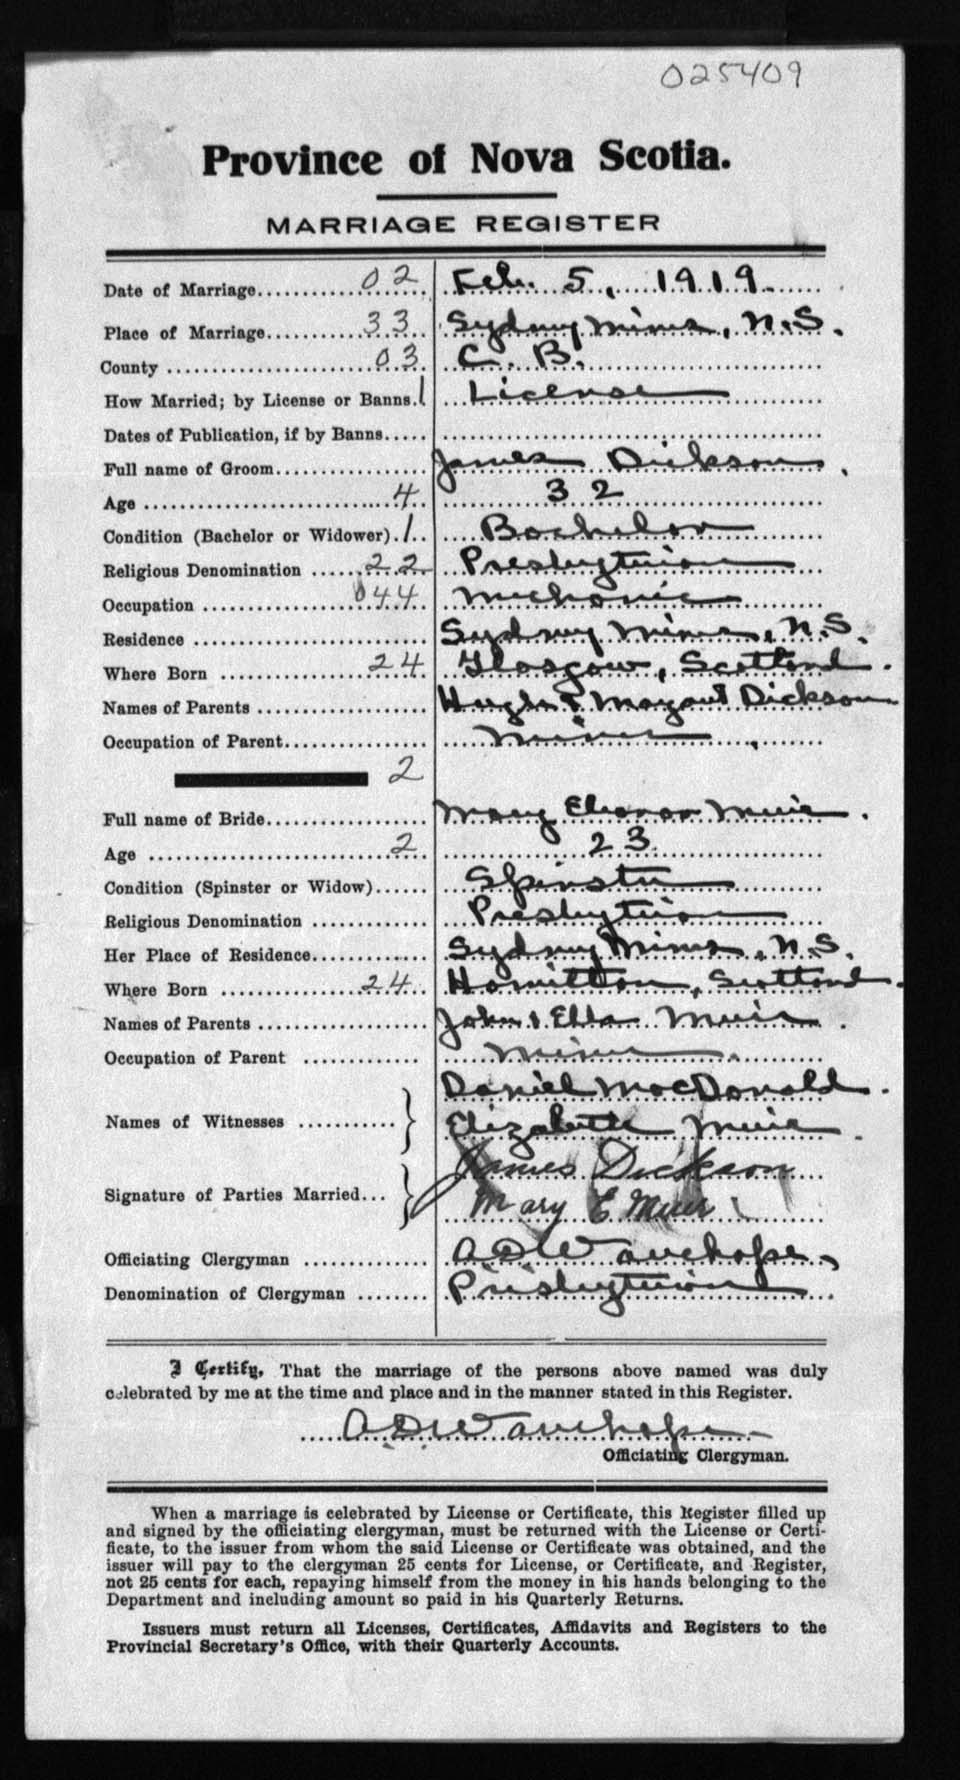 025409
Province of Nova Scotia.
MARRIAGE REGISTER
Date of Marriage.................. 02 Feb. 5, 1919.
Place of Marriage................. 33 Sydney Mines, N.S.
County ........................... 03 C. B.
How Married; by License or Banns. 1 License
Dates of Publication, if by Banns.....
Full name of Groom.................. James Dickson.
Age .............................. 4 32
Condition (Bachelor or Widower). 1 Bachelor
Religious Denomination ...... 22 Presbyterian
Occupation .................. 044 Mechanic
Residence ........................... Sydney Mines, N.S.
Where Born .................. 24 Glasgow, Scotland.
Names of Parents .................... Hugh & Margaret Dickson
Occupation of Parent................. Miner
2
Full name of Bride................... Mary Eleanor Muir.
Age .............................. 2 23.
Condition (Spinster or Widow)...... Spinster
Religious Denomination ............. Presbyterian
Her Place of Residence............. Sydney Mines, N.S.
Where Born .................. 24 Hamilton, Scotland.
Names of Parents .................... John & Ella Muir.
Occupation of Parent ............. Miner
Daniel MacDonald.
Names of Witnesses ........... } Elizabeth Muir.
James Dickson
Signature of Parties Married... } Mary E Muir
Officiating Clergyman ............. A D Wauchope,
Denomination of Clergyman ........ Presbyterian
I Certify, That the marriage of the persons above named was duly
celebrated by me at the time and place and in the manner stated in this Register.
A. D. Wauchope
Officiating Clergyman.
When a marriage is celebrated by License or Certificate, this Register filled up
and signed by the officiating clergyman, must be returned with the License or Certi-
ficate, to the issuer from whom the said License or Certificate was obtained, and the
issuer will pay to the clergyman 25 cents for License, or Certificate, and Register,
not 25 cents for each, repaying himself from the money in his hands belonging to the
Department and including amount so paid in his Quarterly Returns.
Issuers must return all Licenses, Certificates, Affidavits and Registers to the
Provincial Secretary's Office, with their Quarterly Accounts.